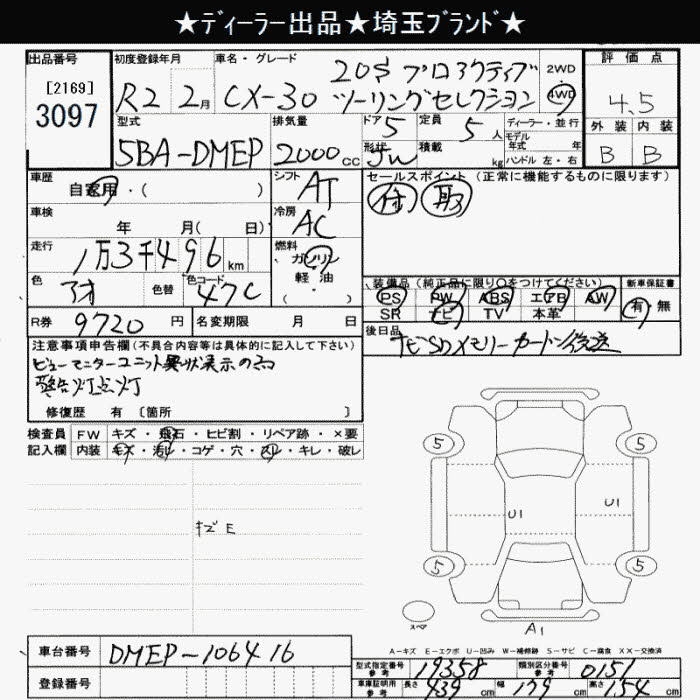 ★ディーラー出品★埼玉ブランド★
出品番号
[2169]
3097
初度登録年月
R2 2月
車名・グレード
CX-30 20S プロアクティブ
ツーリングセレクション
2WD
4WD
評価点
4.5
外装 内装
B B
型式
5BA-DMEP
排気量
2000cc
ドア 5
形状
定員 5人
積載 kg
ディーラー・並行
モデル年式 年
ハンドル 左・右
車歴
自家用・( )
シフト
AT
セールスポイント (正常に機能するものに限ります)
車検
年 月( 日)
冷房
AC
走行
1万3千496km
燃料
ガソリン
軽・油
・( )
色
色替
色コード
47C
装備品(純正品に限り○をつけてください)
PS PW ABS エアB AW
SR ナビ TV 本革
新車保証書
有 無
R券 9720円
名変期限 月 日
後日品
ナビSDメモリーカートン後送
注意事項申告欄(不具合内容等は具体的に記入して下さい)
警告灯点灯
修復歴 有 〔箇所 〕
検査員記入欄
FW キズ・飛石・ヒビ割・リペア跡・×要
内装 キズ・汚レ・コゲ・穴・スレ・キレ・破レ
キズE
5 5
U1 U1
5 5
スペア
A1
A-キズ E-エクボ U-凹み W-補修跡 S-サビ C-腐食 XX-交換済
車台番号
DMEP-106416
登録番号
型式指定番号 参考 19358
類別区分番号 参考 0151
車庫証明用 参考 長さ 439cm 幅 179cm 高さ 154cm